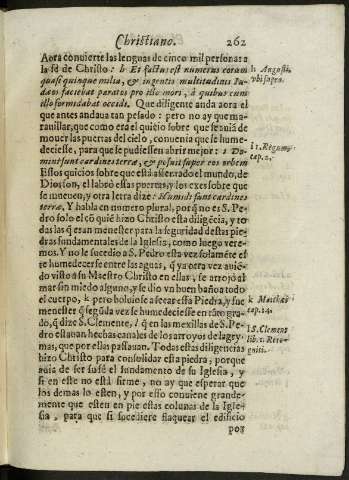 Christiano. 262
Aora conuierte las lenguas de cinco mil personas a
la fé de Christo: h Et factus est numerus eorum
quasi quinque milia, & ingentis multitudinis Iu-
daos faciebat paratos pro illo mori, à quibus eum
illo formidabat occidi. Que diligente anda aora el
que antes andaua tan pesado: pero no ay que ma-
rauillar, que como era el quicio sobre que se auia de
mouer las puertas del cielo, conuenia que se hume-
deciesse, para que le pudiessen abrir mejor: i Do-
mini sunt cardines terræ, & posuit super eos orbem
Estos quicios sobre que està assentado el mundo, de
Dios son, el labrò estas puertas, y los exes sobre que
se mueuen, y otra letra dize: Humidi sunt cardines
terræ. Y habla en numero plural, porq̃ no es S. Pe-
dro solo el cō quiē hizo Christo esta diligēcia, y to
das las q̃ eran menester para la seguridad destas pie
dras fundamentales de la Iglesia, como luego vere-
mos. Y no le sucediò a S. Pedro esta vez solamēte el
te humedecerse entre las aguas, q̃ ya otra vez auiē-
do visto a su Maestro Christo en ellas, se arrojò al
mar sin miedo alguno, y se dio vn buen baño a todo
el cuerpo, k pero boluiose a secar esta Piedra, y fue
menester q̃ segūda vez se humedeciesse en tāto gra-
do, q̃ dize S. Clemente, l q̃ en las mexillas de S. Pe-
dro estauan hechas canales de los arroyos de lagry-
mas, que por ellas passauan. Todas estas diligencias
hizo Christo para consolidar esta piedra, porque
auia de ser fufé el fundamento de su Iglesia, y
si en este no està firme, no ay que esperar que
los demas lo esten, y por esso conuiene grande-
mente que esten en pie estas colunas de la Igle-
sia, para que si sucediere flaquear el edificio
por
h Augusti.
vbi supra.
i 1. Regum
cap. 2.
k Matthæi
cap. 14.
l S. Clement
lib. 2. Reco-
gniti.